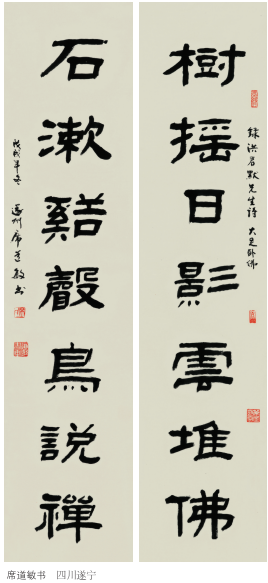 樹搖日影雲堆佛
錄洪君默先生詩 大足卧佛
石漱谿聲鳥說禪
戊戌年冬 遂州席道敏书
席道敏书 四川遂宁